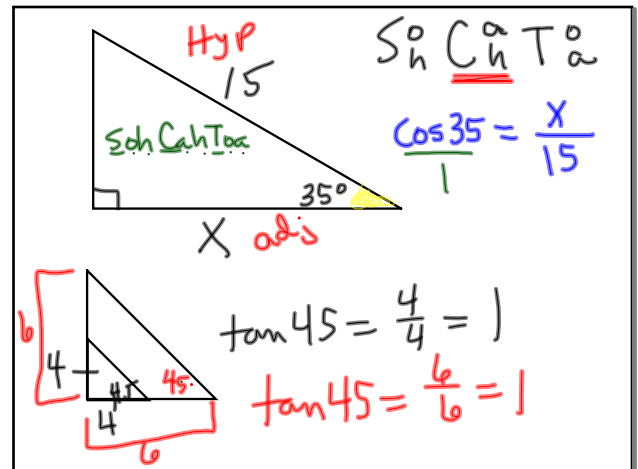 Hyp
15
SohCahToa
35°
X adj
Soh Cah Toa
cos35/1 = x/15
6
4
4
45
45°
6
tan 45 = 4/4 = 1
tan 45 = 6/6 = 1